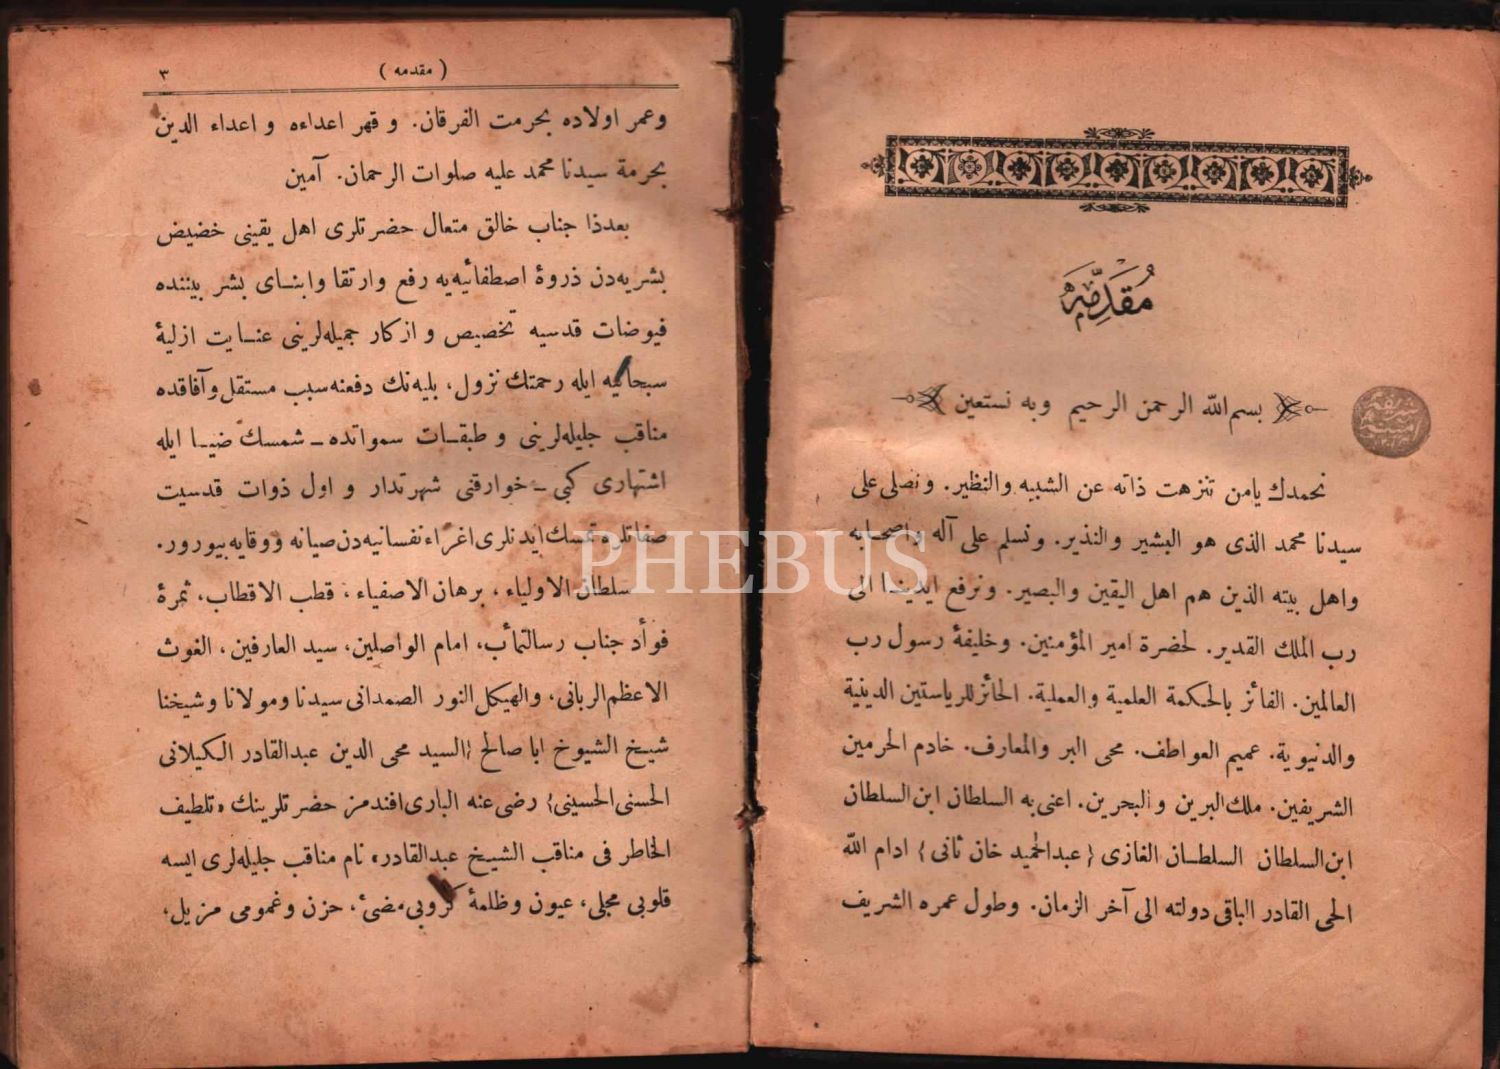 مُقَدِّمَه
بسم الله الرحمن الرحيم وبه نستعين
نحمدك يامن تنزهت ذاته عن الشبيه والنظير. ونصلى على
سيدنا محمد الذى هو البشير والنذير. ونسلم على آله واصحابه
واهل بيته الذين هم اهل اليقين والبصير. ونرفع ايدينا الى
رب الملك القدير. لحضرة امير المؤمنين. وخليفۀ رسول رب
العالمين. الفائز بالحكمة العلمية والعملية. الحائز للرياستين الدينية
والدنيوية. عميم العواطف. محى البر والمعارف. خادم الحرمين
الشريفين. ملك البرين والبحرين. اعنى به السلطان ابن السلطان
ابن السلطان السلطان الغازى {عبدالحميد خان ثانى} ادام الله
الحى القادر الباقى دولته الى آخر الزمان. وطول عمره الشريف
٣
( مقدمه )
وعمر اولاده بحرمت الفرقان. و قهر اعداءه و اعداء الدين
بحرمة سيدنا محمد عليه صلوات الرحمان. آمين
بعدذا جناب خالق متعال حضرتلرى اهل يقينى خضيض
بشريه‌دن ذروۀ اصطفائيه‌يه رفع وارتقا وابناى بشر بيننده
فيوضات قدسيه تخصيص و ازكار جميله‌لرينى عنايت ازليۀ
سبحانيه ايله رحمتك نزول، بليه‌نك دفعنه سبب مستقل و آفاقده
مناقب جليله‌لرينى و طبقات سمواتده ـ شمسك ضيا ايله
اشتهارى كبى ـ خوارقنى شهرتدار و اول ذوات قدسيت
صفاتلره تمسك ايدنلرى اغراء نفسانيه‌دن صيانه ووقايه بيورور.
سلطان الاولياء، برهان الاصفياء، قطب الاقطاب، ثمرۀ
فوأد جناب رسالتمأب، امام الواصلين، سيد العارفين، الغوث
الاعظم الربانى، والهيكل النور الصمدانى سيدنا ومولانا وشيخنا
شيخ الشيوخ ابا صالح {السيد محى الدين عبدالقادر الكيلانى
الحسنى الحسينى} رضى عنه البارى افندمز حضرتلرينك «تلطيف
الخاطر فى مناقب الشيخ عبدالقادر» نام مناقب جليله‌لرى ايسه
قلوبى مجلى، عيون وظلمۀ كروبى مضئ، حزن وغمومى مزيل،
PHEBUS